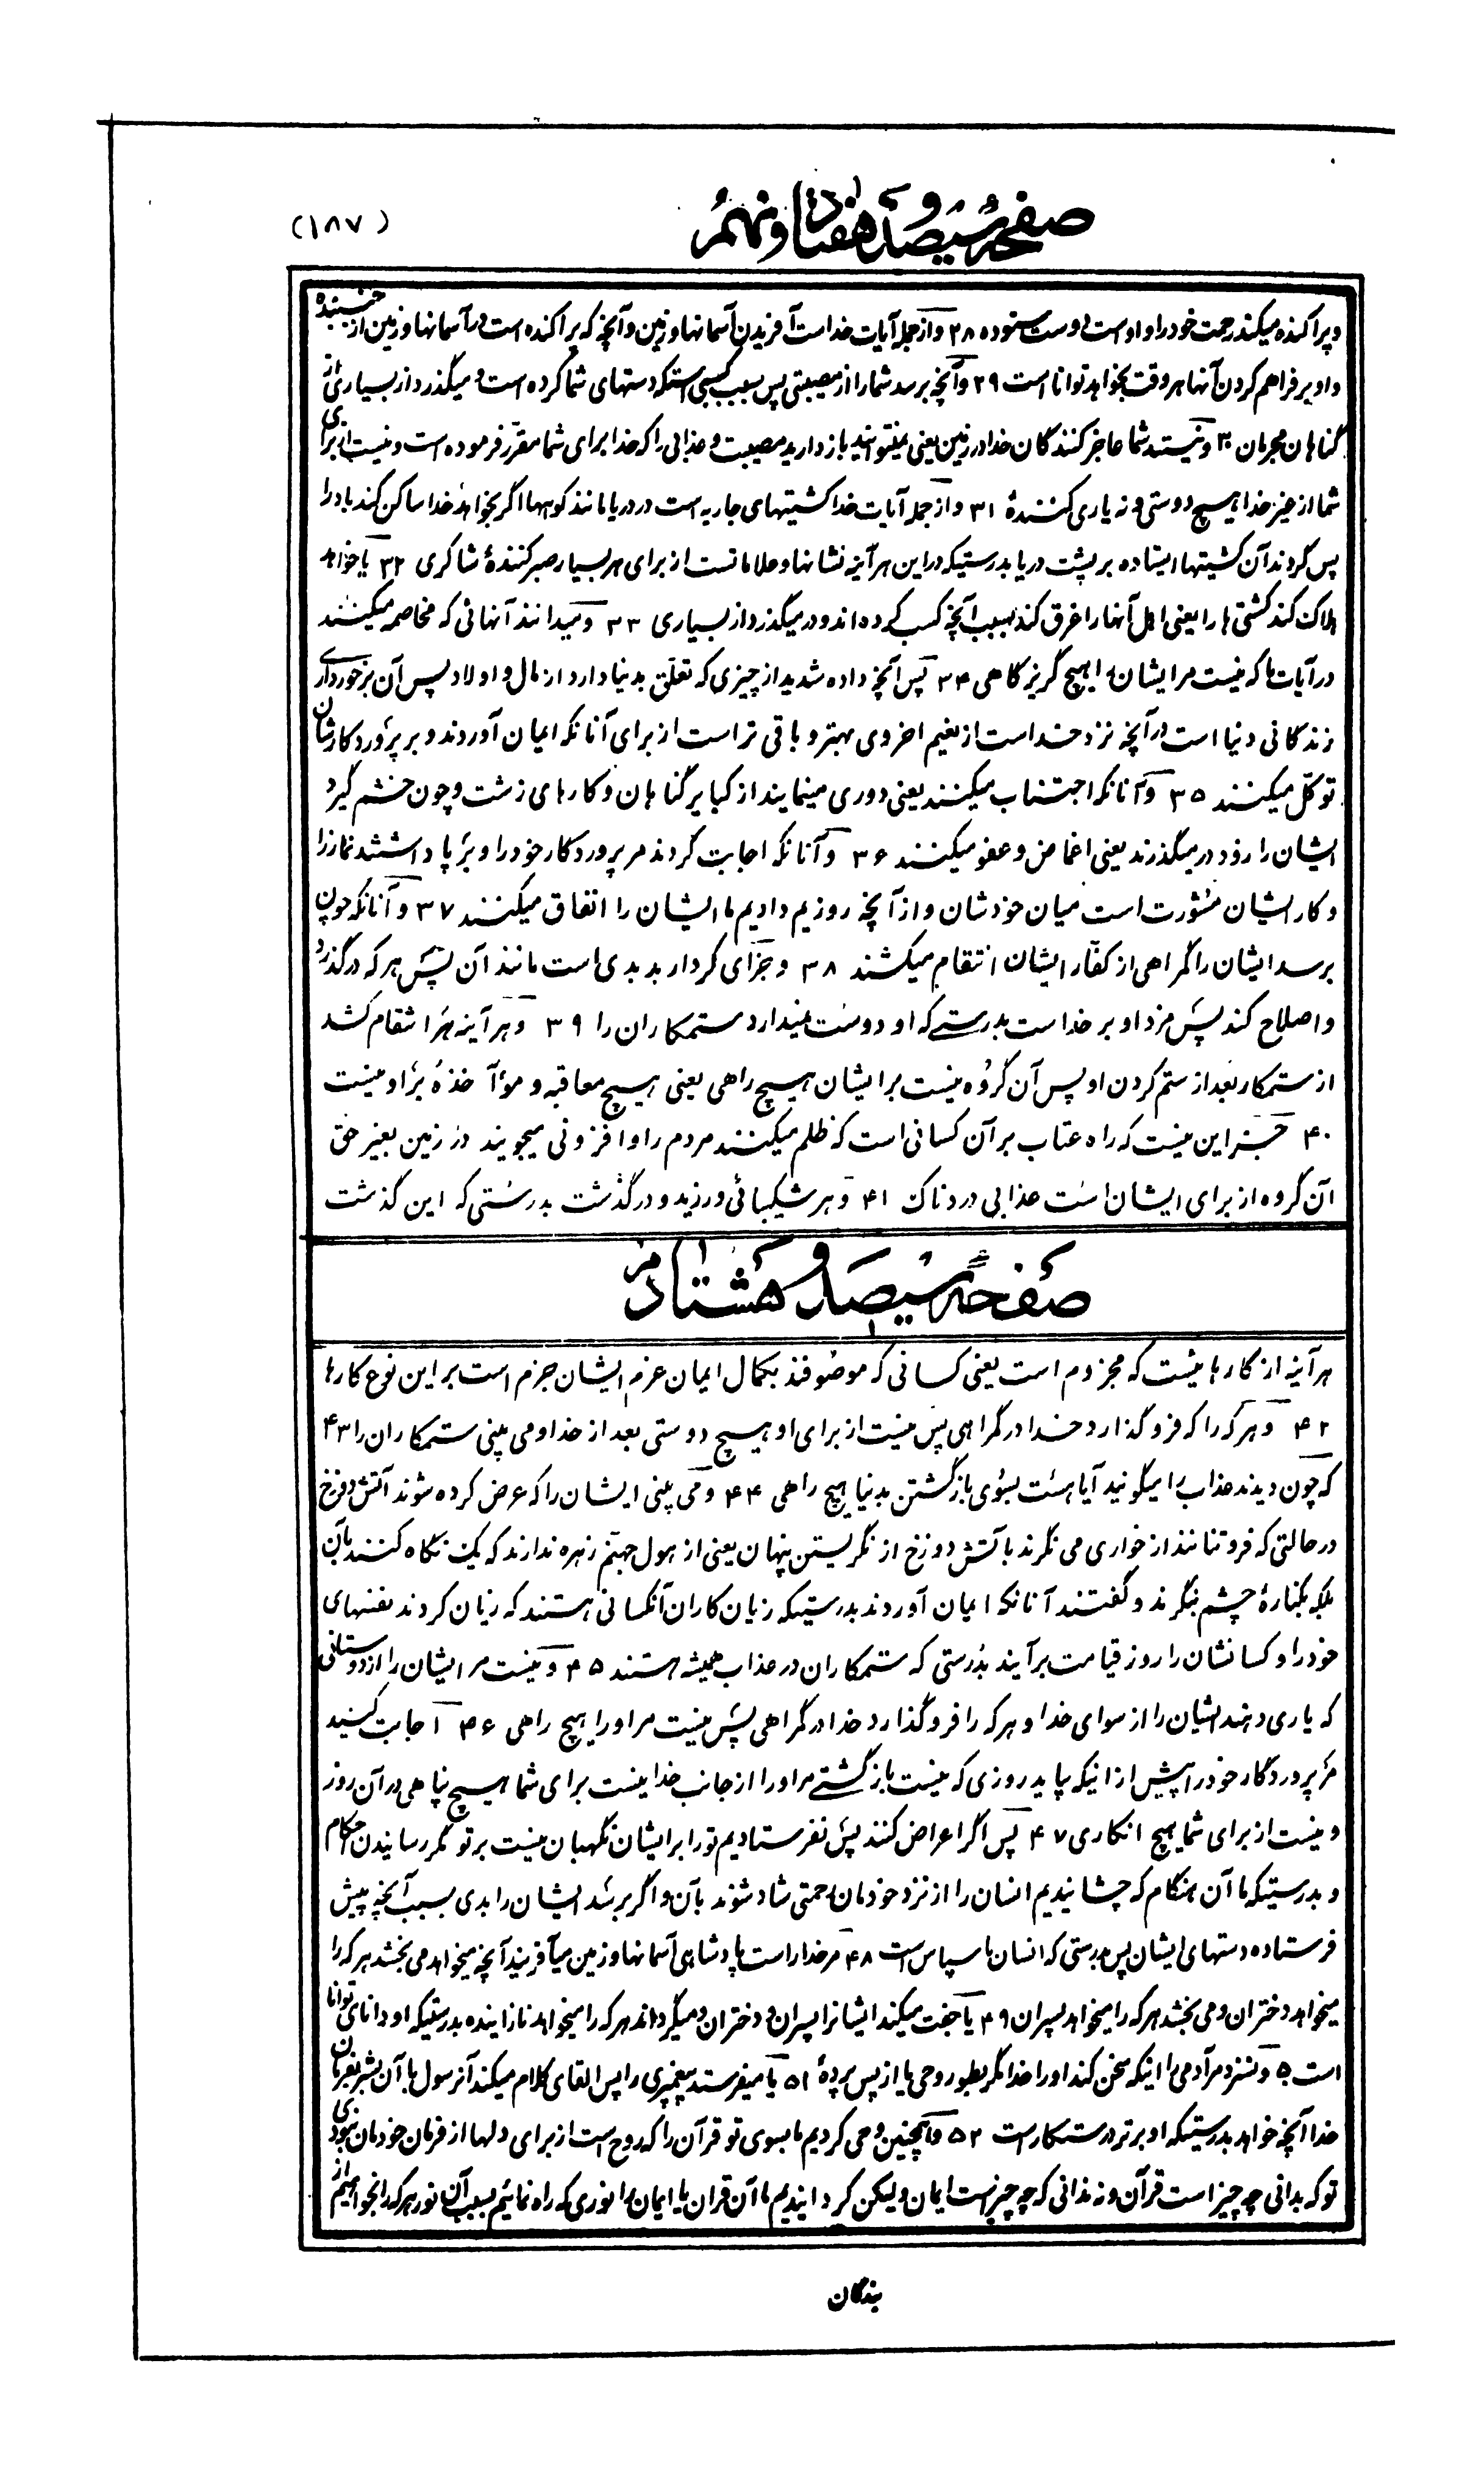 (۱۸۷)
صفحه سیصد و هفتاد و نهم
و پراکنده میکند رحمت خود را و اوست دوست ستوده ۲۸ و از جمله آیات خداست آفریدن آسمانها و زمین و آنچه که پراکنده است در آسمانها و زمین از جنبنده
و او بر فراهم کردن آنها هر وقت بخواهد توانا است ۲۹ و آنچه برسد شما را از مصیبتی پس بسبب کسبی استکه دستهای شما کرده است و میگذرد از بسیاری از
گناهان مجرمان ۳۰ و نیستید شما عاجز کنندگان خدا در زمین یعنی نمیتوانید بازدارید مصیبت و عذابی را که خدا برای شما مقرّر فرموده است و نیست از برای
شما از غیر خدا هیچ دوستی و نه یاری کنندهٔ ۳۱ و از جمله آیات خدا کشتیهای جاریه است در دریا مانند کوهها اگر بخواهد خدا ساکن کند باد را
پس گردند آن کشتیها ایستاده بر پشت دریا بدرستیکه در این هر آینه نشانها و علاماتست از برای هر بسیار صبر کنندهٔ شاکری ۳۲ یا خواهد
هلاک کند کشتی ها را یعنی اهل آنها را غرق کند بسبب آنچه کسب کرده اند و در میگذرد از بسیاری ۳۳ و میدانند آنهائی که مخاصمه میکنند
در آیات ما که نیست مر ایشان را هیچ گریزگاهی ۳۴ پس آنچه داده شدید از چیزی که تعلّق بدنیا دارد از مال و اولاد پس آن برخورداری
زندگانی دنیا است و آنچه نزد خداست از نعیم اخروی بهتر و باقی تر است از برای آنانکه ایمان آوردند و بر پروردگارشان
توکّل میکنند ۳۵ و آنانکه اجتناب میکنند یعنی دوری مینمایند از کبایر گناهان و کارهای زشت و چون خشم گیرد
ایشان را زود در میگذرند یعنی اغماض و عفو میکنند ۳۶ و آنانکه اجابت کردند مر پروردگار خود را و بر پا داشتند نماز را
و کار ایشان مشورت است میان خودشان و از آنچه روزیم دادیم ما ایشان را انفاق میکنند ۳۷ و آنانکه چون
برسد ایشان را گمراهی از کفّار ایشان انتقام میکشند ۳۸ و جزای کردار بد بدی است مانند آن پس هر که درگذرد
و اصلاح کند پس مزد او بر خداست بدرستی که او دوست نمیدارد ستمکاران را ۳۹ و هر آینه هر انتقام کشد
از ستمکار بعد از ستم کردن او پس آن گروه نیست بر ایشان هیچ راهی یعنی هیچ معاقبه و مؤآخذهٔ بر او نیست
۴۰ جز این نیست که راه عتاب بر آن کسانی است که ظلم میکنند مردم را و افزونی میجویند در زمین بغیر حق
آن گروه از برای ایشان است عذابی دردناک ۴۱ و هر شکیبائی ورزید و درگذشت بدرستی که این گذشت
صفحه سیصد و هشتادم
هر آینه از کارهائیست که مجزوم است یعنی کسانی که موصوفند بکمال ایمان عزم ایشان جزم است بر این نوع کارها
۴۲ و هر که را که فرو گذارد خدا در گمراهی پس نیست از برای او هیچ دوستی بعد از خدا و می بینی ستمکاران را ۴۳
که چون دیدند عذاب را میگویند آیا هست بسوی بازگشتن بدنیا هیچ راهی ۴۴ و می بینی ایشان را که عرض کرده شوند آتش دوزخ
در حالتی که فروتنانند از خواری می نگرند بآتش دوزخ از نگریستن پنهان یعنی از هول جهنّم زهره ندارند که یک نگاه کنند بآن
بلکه بکنارهٔ چشم بنگرند و گفتند آنانکه ایمان آوردند بدرستیکه زیان کاران آنکسانی هستند که زیان کردند نفسهای
خود را و کسانشان را روز قیامت برآیند بدرستی که ستمکاران در عذاب همیشه هستند ۴۵ و نیست مر ایشان را از دوستانی
که یاری دهند ایشان را از سوای خدا و هر که را فرو گذارد خدا در گمراهی پس نیست مر او را هیچ راهی ۴۶ اجابت کنید
مر پروردگار خود را پیش از انیکه بیاید روزی که نیست بازگشتی مر او را از جانب خدا نیست برای شما هیچ پناهی در آن روز
و نیست از برای شما هیچ انکاری ۴۷ پس اگر اعراض کنند پس نفرستادیم تو را بر ایشان نگهبان نیست بر تو مگر رسانیدن احکام
و بدرستیکه ما آن هنگام که چشانیدیم انسان را از نزد خودمان رحمتی شاد شوند بآن و اگر برسد ایشان را بدی بسبب آنچه پیش
فرستاده دستهای ایشان پس بدرستی که انسان ناسپاس است ۴۸ مر خدا راست پادشاهی آسمانها و زمین میآفریند آنچه میخواهد می بخشد هر که را
میخواهد دختران و می بخشد هر که را میخواهد پسران ۴۹ یا جفت میکند ایشانرا پسران و دختران و میگرداند هر که را میخواهد نازاینده بدرستیکه او دانای توانا
است ۵۰ و نسزد مر آدمی را اینکه سخن کند او را خدا مگر بطور وحی یا از پس پردهٔ ۵۱ یا میفرستد پیغمبری را پس القای کلام میکند آنرسول بآن بشر بفرمان
خدا آنچه خواهد بدرستیکه او برتر درستکار است ۵۲ و همچنین وحی کردیم ما بسوی تو قرآن را که روح است از برای دلها از فرمان خودمان نبودی
تو که بدانی چه چیز است قرآن و نه ندانی که چه چیز است ایمان و لیکن گردانیدیم ما آن قران یا ایمان را نوری که راه نمائیم بسبب آن نور هر که را بخواهیم از
بندگان